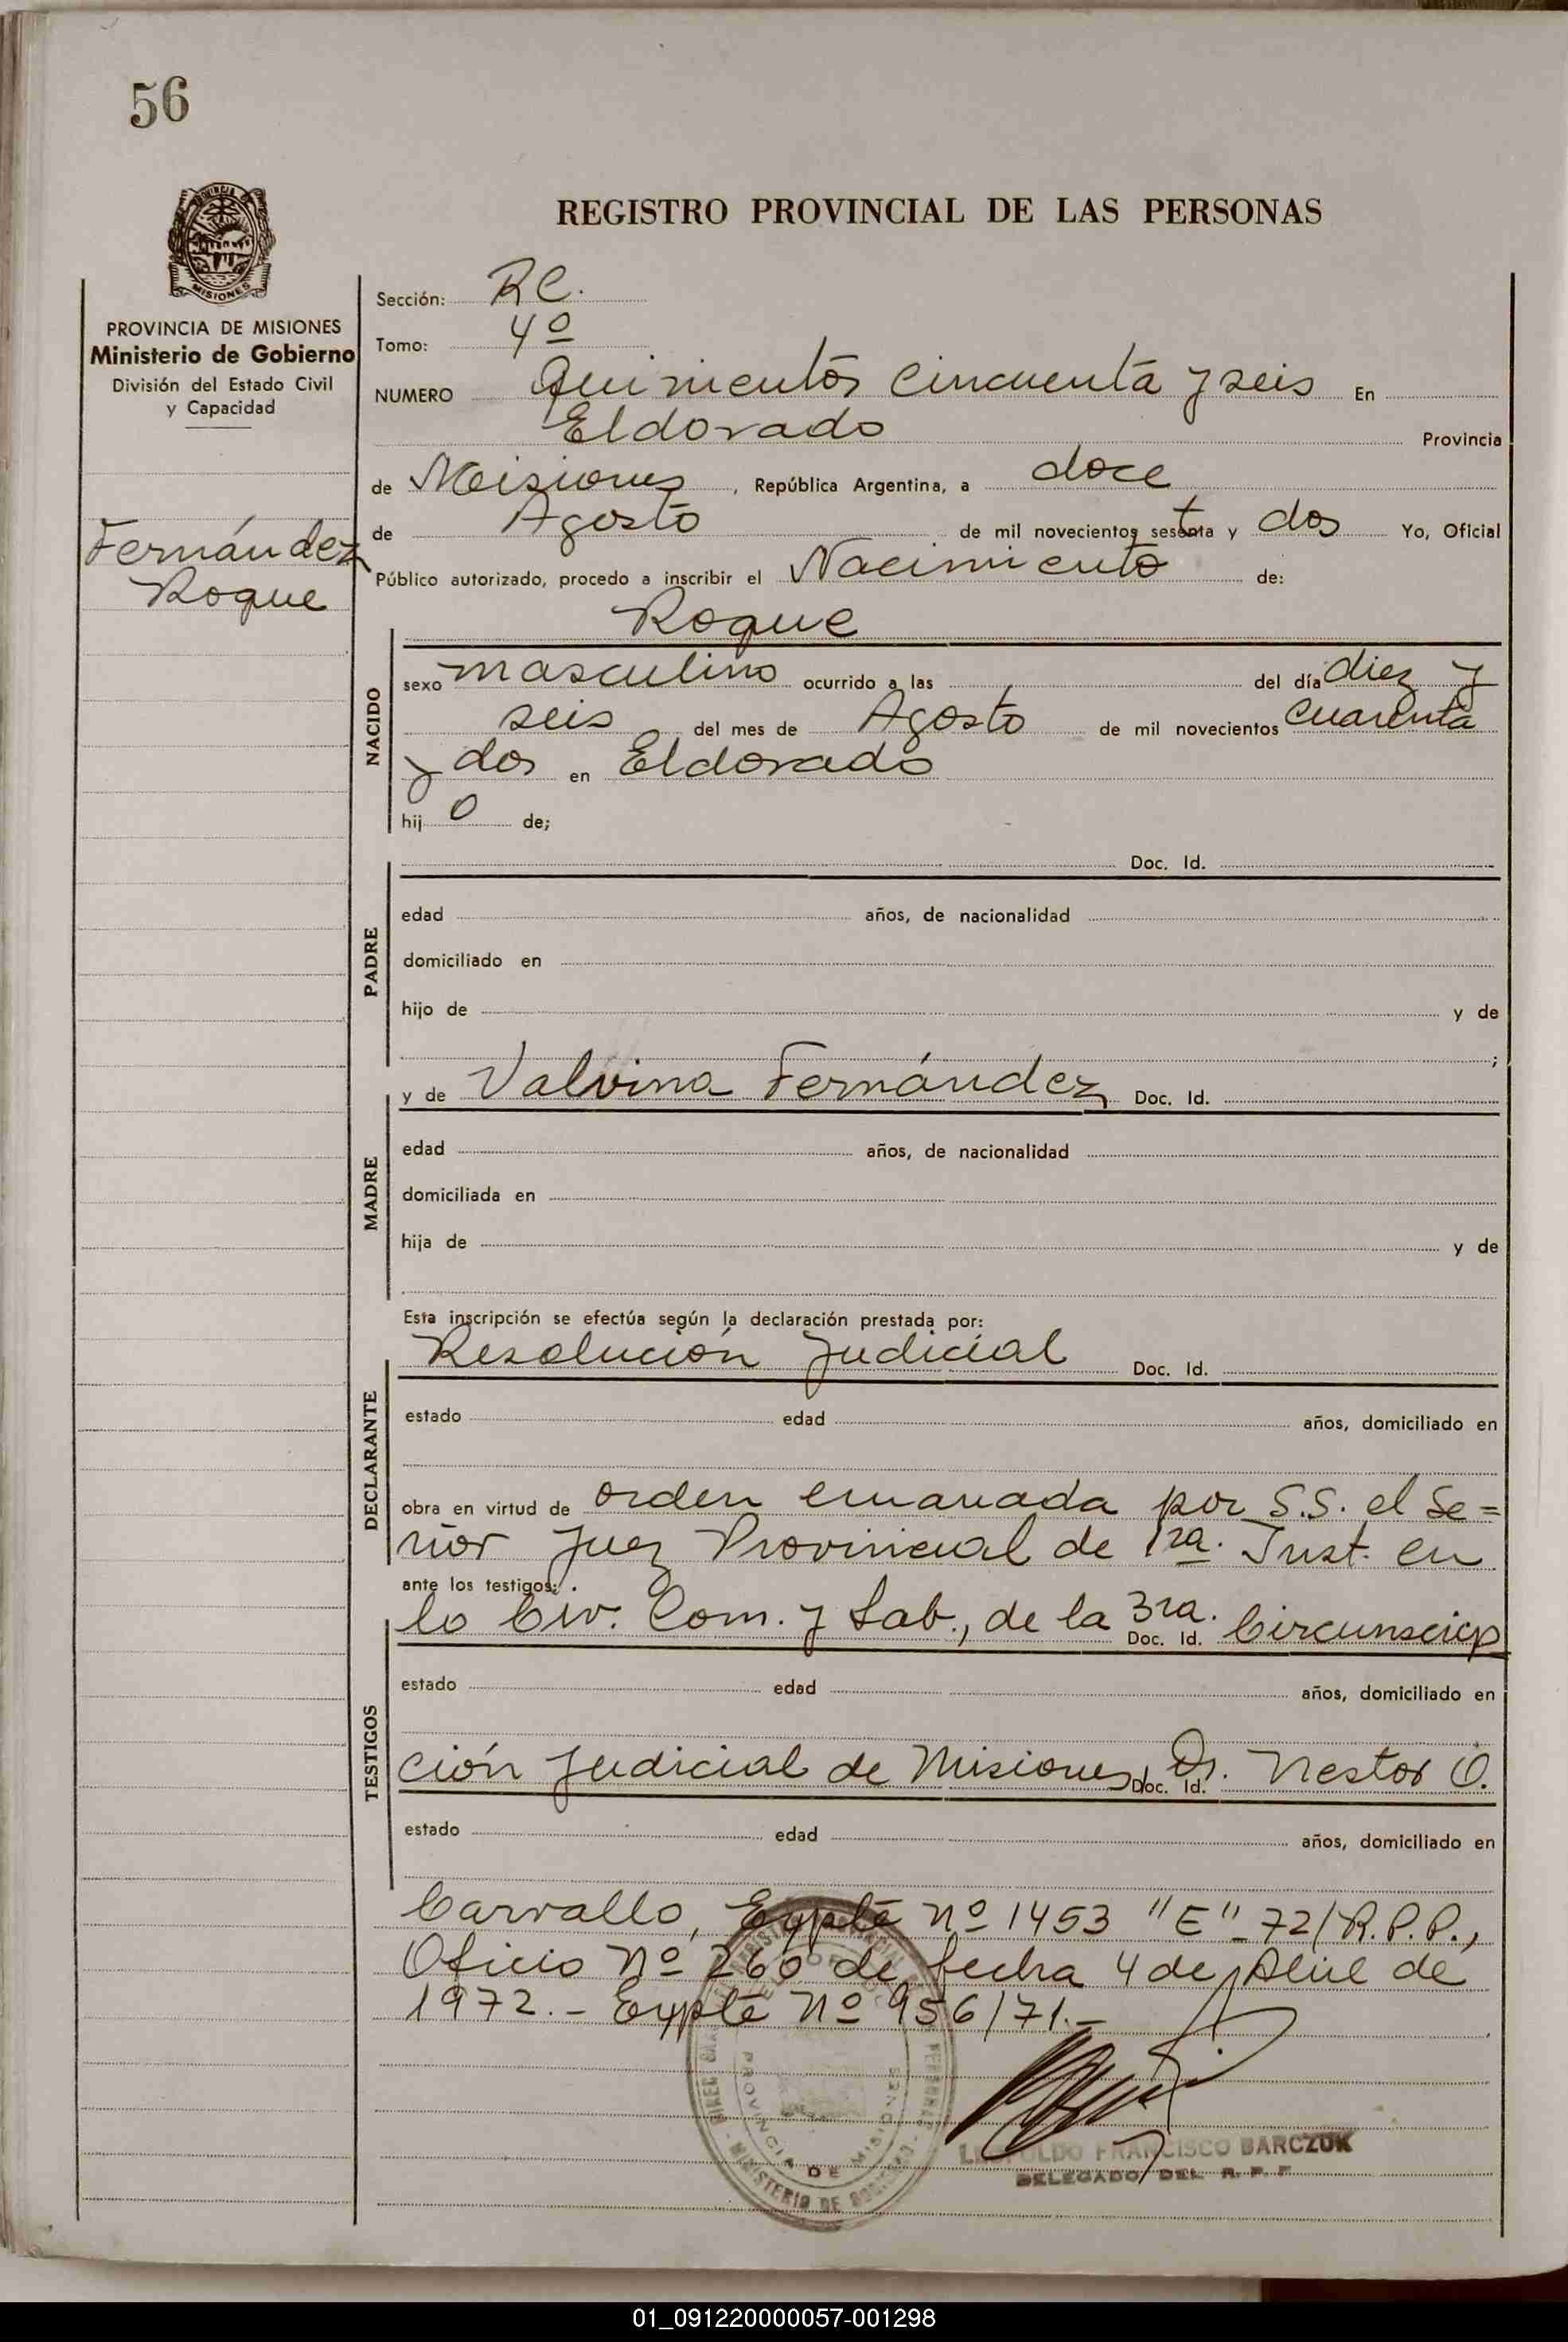 56
REGISTRO PROVINCIAL DE LAS PERSONAS
MISIONES
PROVINCIA DE MISIONES
Ministerio de Gobierno
División del Estado Civil
y Capacidad
Fernández
Roque
Sección: RC.
Tomo: 4º
NUMERO Quinientos cincuenta y seis En
Eldorado Provincia
de Misiones, República Argentina, a doce
de Agosto de mil novecientos sestenta y dos Yo, Oficial
Público autorizado, procedo a inscribir el Nacimiento de:
Roque
NACIDO
sexo masculino ocurrido a las del día diez y
seis del mes de Agosto de mil novecientos cuarenta
y dos en Eldorado
hijo de;
PADRE
Doc. Id.
edad años, de nacionalidad
domiciliado en
hijo de y de
;
MADRE
y de Valvina Fernández Doc. Id.
edad años, de nacionalidad
domiciliada en
hija de y de
Esta inscripción se efectúa según la declaración prestada por:
DECLARANTE
Resolución Judicial Doc. Id.
estado edad años, domiciliado en
obra en virtud de orden emanada por S.S. el Se=
ñor Juez Provincial de 1ra. Inst. en
ante los testigos:
TESTIGOS
lo Civ. Com. y Lab., de la 3ra. Doc. Id. Circunscrip
estado edad años, domiciliado en
ción Judicial de Misiones, Doc. Id. Dr. Nestor O.
estado edad años, domiciliado en
Carvallo, Expte nº 1453 "E"-72/R.P.P.,
Oficio Nº 260 de fecha 4 de Abril de
1972.- Expte Nº 956/71.-
PROVINCIA DE MISIONES
MINISTERIO DE GOBIERNO
LEOPOLDO FRANCISCO BARCZUK
DELEGADO DEL R. P. P.
01_091220000057-001298